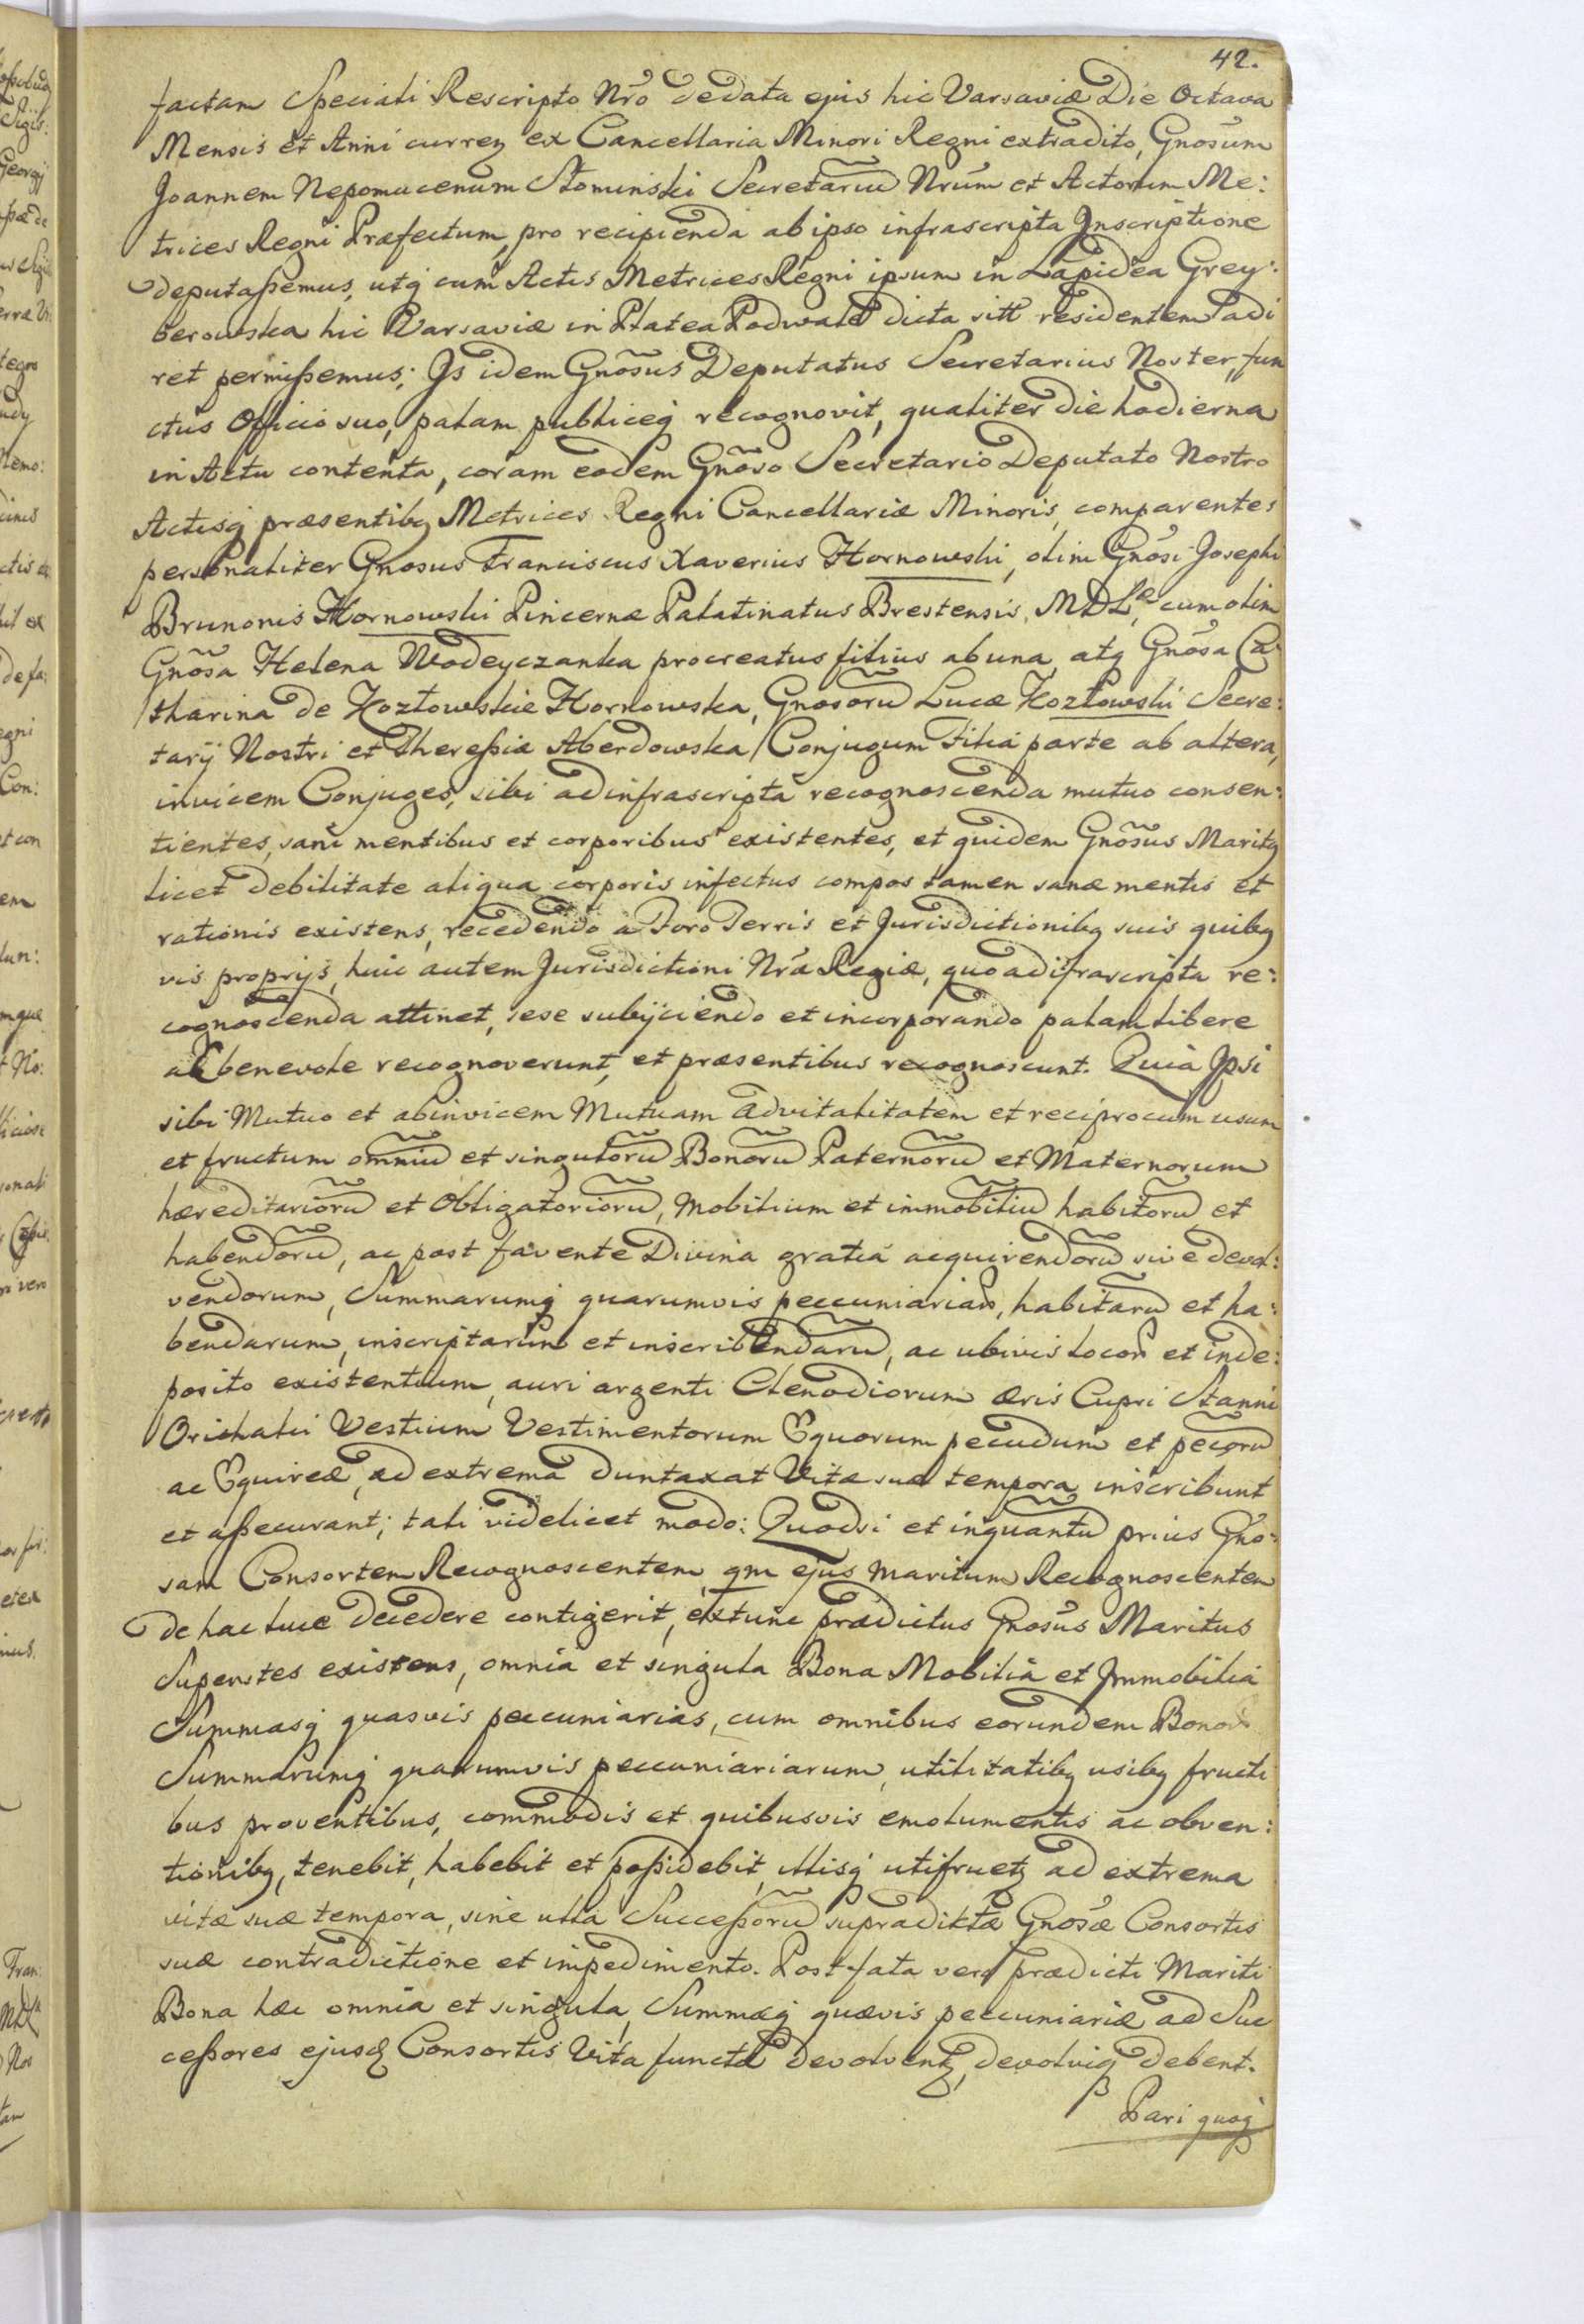 42.
factam Speciali Rescripto Nr̃o de data ejus hic Varsaviæ Die Octava
Mensis et Anni currẽ ex Cancellaria Minori Regni extradito, Gnosum
Joannem Nepomucenum Słominski Secretariũ Nrũm et Actorum Me:
trices Regni Præfectum, pro recipienda ab ipso infrascripta Jnscriptione
deputaßemus, utq cum Actis Metrices Regni ipsum in Lapidea Grey:
berowska hic Varsaviæ in Platea Podwale dicta sitt residentem adi
ret permißemus; Js idem Gnõsus Deputatus Secretarius Noster, fun
ctus Officio suo, palam publiceq recognovit, qualiter die hodierna
in Actu contenta, coram eodem Gnõso Secretario Deputato Nostro
Actisq præsentibq Metrices Regni Cancellariæ Minoris, comparentes
personaliter Gnosus Franciscus Xaverius Hornowski, olim Gnõsi Josephi
Brunonis Hornowski Pincernæ Palatinatus Brestensis, MDLæ, cum olim
Gnõsa Helena Wodeyczanka procreatus filius ab una, atq Gnõsa Ca
tharina de Kozłowskie Hornowska, Gnosorũ Lucæ Kozłowski Secre:
tarÿ Nostri et Thereßiæ Aberdowska Conjugum Filia parte ab altera,
invicem Conjuges, sibi ad infrascripta recognoscenda mutuo consen:
tientes, sani mentibus et corporibus existentes, et quidem Gnõsus Maritq
licet debilitate aliqua corporis infectus compos tamen sanæ mentis et
rationis existens, recedendo a Foro Terris et Jurisdictionibq suis quibq
vis proprÿs, huic autem Jurisdictioni Nrã Regiæ, quo ad ifrascripta re:
cognoscenda attinet, sese subÿciendo et incorporando palam libere
ac benevole recognoverunt, et præsentibus recognoscunt. Quia Jpsi
sibi Mutuo et abinvicem Mutuam advitalitatem et reciprocum usum
et fructum omniũ et singulorũ Bonorũ Paternorũ et Maternorum
hæreditariorũ et Obligatoriorũ, Mobilium et immobiliũ habitorũ et
habendorũ, ac post favente Divina gratia acquirendorũ sive devol:
vendorum, Summarumq quarumvis peccuniariar, habitarũ et ha:
bendarum, inscriptarum et inscribendarũ, ac ubivis locor et in de:
posito existentium, auri argenti Clenodiorum æris Cupri Stanni
Orichalci Vestium Vestimentorum Equorum pecudum et pecorũ
ac Equireæ, ad extrema duntaxat Vitæ suæ tempora inscribunt
et aßecurant; tali videlicet modo: Quodsi et inquantũ prius Gno:
sam Consortem Recognoscentem, qm ejus maritum Recognoscentem
de hac luce decedere contigerit, extunc prædictus Gnosus Maritus
Superstes existens, omnia et singula Bona Mobilia et Jmmobilia
Summasq quasvis peccuniarias, cum omnibus eorundem Bonor
Summarumq quarumvis peccuniariarum, utilitatibq usibq fructi
bus proventibus, commodis et quibusvis emolumentis ac obven:
tionibq, tenebit, habebit et poßidebit, illisq utifruetq ad extrema
vitæ suæ tempora, sine ulla Succeßorũ supradiktæ Gnosæ Consortis
suæ contradictione et impedimento. Post fata vero prædicti Mariti
Bona hæc omnia et singula, Summæq quævis peccuniariæ ad Suc
ceßores ejusd Consortis Vita functæ devolventq, devolviq debent.
Pari quoq